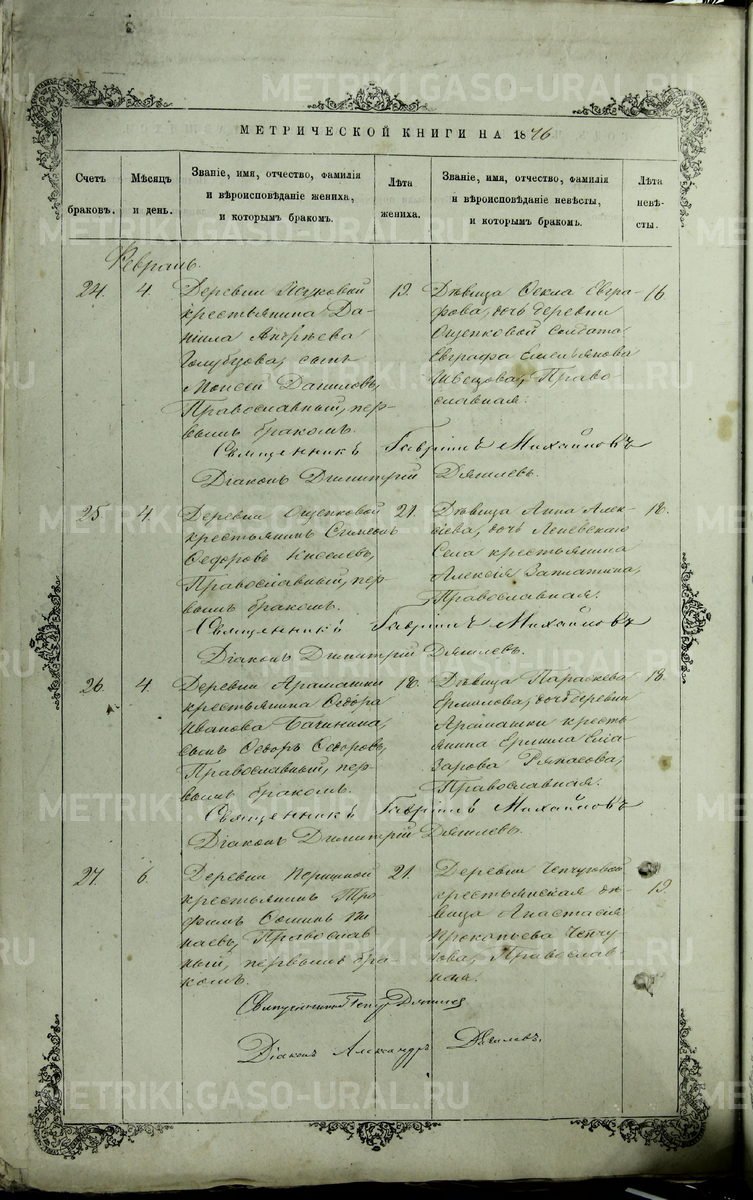 МЕТРИЧЕСКОЙ КНИГИ НА 1876
Счетъ браковъ.
Мѣсяцъ и день.
Званіе, имя, отчество, фамилія
и вѣроисповѣданіе жениха,
и которымъ бракомъ.
Лѣта жениха.
Званіе, имя, отчество, фамилія
и вѣроисповѣданіе невѣсты,
и которымъ бракомъ.
Лѣта невѣсты.
Февраль.
24. 4.
Деревни
крестьянина Да-
ніила Андрѣева
Голубцова, сынъ
Моисей Даниловъ,
Православный, пер-
вымъ бракомъ.
19.
Дѣвица Ѳекла Евгра-
фова, дочь деревни
Ощепковой солдата
Евграфа Емельянова
Швецова, Право
славная.
16
Священникъ Гавріилъ Михайловъ
Діаконъ Димитрій Дягилевъ.
25 4.
Деревни Ощепковой
крестьянинъ Симеонъ
Ѳедоровъ Киселевъ,
Православный, пер-
вымъ бракомъ.
21.
Дѣвица Анна Алек-
сіева, дочь Леневскаго
Села крестьянина
Алексія Заплатина,
Православная.
18.
Священникъ Гавріилъ Михайловъ
Діаконъ Димитрій Дягилевъ.
26. 4.
Деревни Арамашки
крестьянина Ѳедора
Иванова Бачинина,
сынъ Ѳедоръ Ѳедоровъ,
Православный, пер-
вымъ бракомъ.
18.
Дѣвица Параскева
Ермилова, дочь деревни
Арамашки кресть
янина Ермила Елиа
зарова
Православная.
18.
Священникъ Гавріилъ Михайловъ
Діаконъ Димитрій Дягилевъ.
27. 6.
Деревни Першиной
крестьянинъ Тро
фимъ
Православ
ный, первымъ бра
комъ.
21.
Деревни Чепчуговой
крестьянская дѣ-
вица Анастасія
Прокопьева Чепчу
гова, Православ
ная.
19.
Священникъ Петръ Дягилевъ
Діаконъ Александръ Дягилевъ.
METRIKI.GASO-URAL.RU